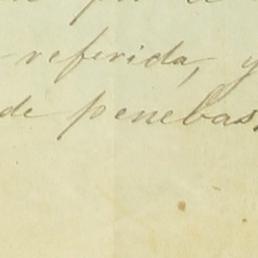 referida, y
de penebas